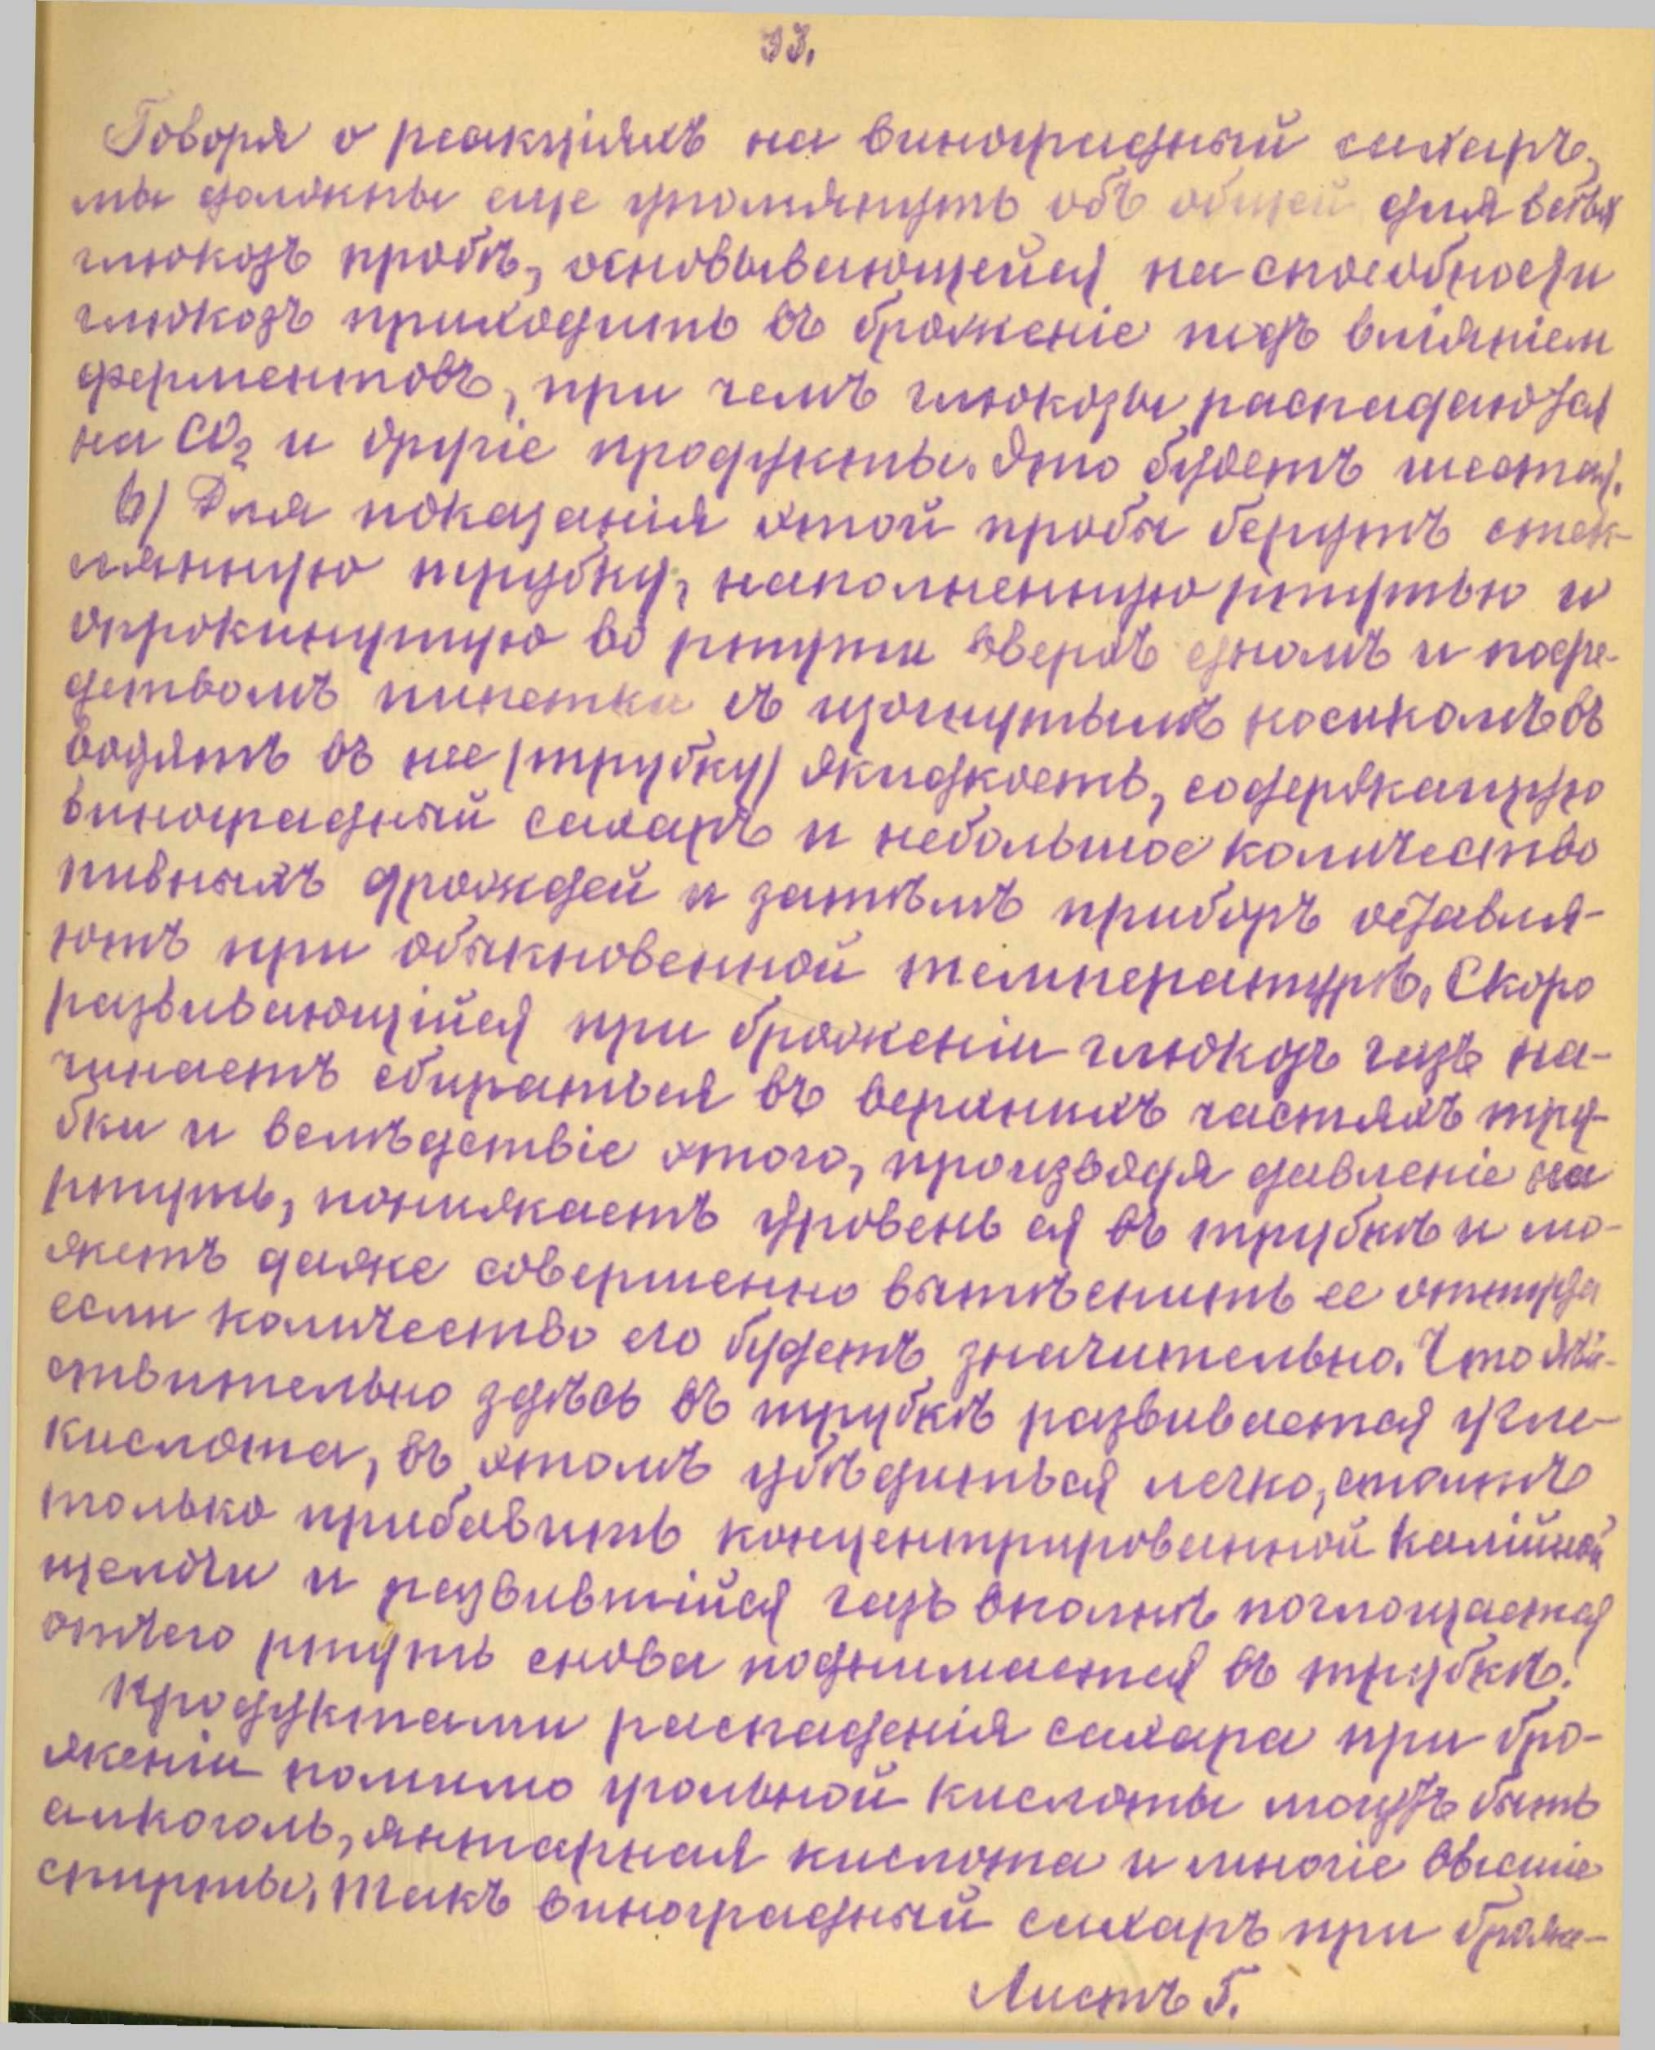 33.
Говоря о реакціяхъ на виноградный сахаръ,
мы должны еще упомянуть объ общей для всѣхъ
глюкозъ пробѣ, основывающейся на способности
глюкозъ приходить въ броженіе подъ вліяніем
ферментовъ, при чемъ глюкозы распадаются
на CO₂ и другіе продукты. Это будетъ шестая.
6) Для показанія этой пробы берутъ стек-
лянную трубку, наполненную ртутью и
опрокинутую во ртути вверхъ дномъ и посре-
дствомъ пипетки съ изогнутымъ носикомъ въ
водятъ въ нее (трубку) жидкость, содержащую
виноградный сахаръ и небольшое количество
пивныхъ дрождей и затѣмъ приборъ оставля-
ютъ при обыкновенной температурѣ. Скоро
развивающійся при броженіи глюкозъ газъ на-
чинаетъ сбираться въ верхнихъ частяхъ тру-
бки и вслѣдствіе этого, производя давленіе на
ртуть, понижаетъ уровень ея въ трубкѣ и мо-
жетъ даже совершенно вытѣснить ее оттуда
если количество его будетъ значительно. Что дѣй-
ствительно здѣсь въ трубкѣ развивается угле-
кислота, въ этомъ убѣдиться легко, стоитъ
только прибавить концентрированной калійной
щелочи и развившійся газъ вполнѣ поглощается
отчего ртуть снова поднимается въ трубкѣ.
Продуктами распаденія сахара при бро-
женіи помимо угольной кислоты могутъ быть
алкоголь, янтарная кислота и многіе высшіе
спирты. Такъ виноградный сахаръ при броже-
Листъ 5.